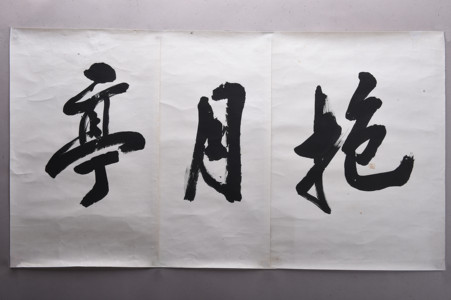 抱月亭